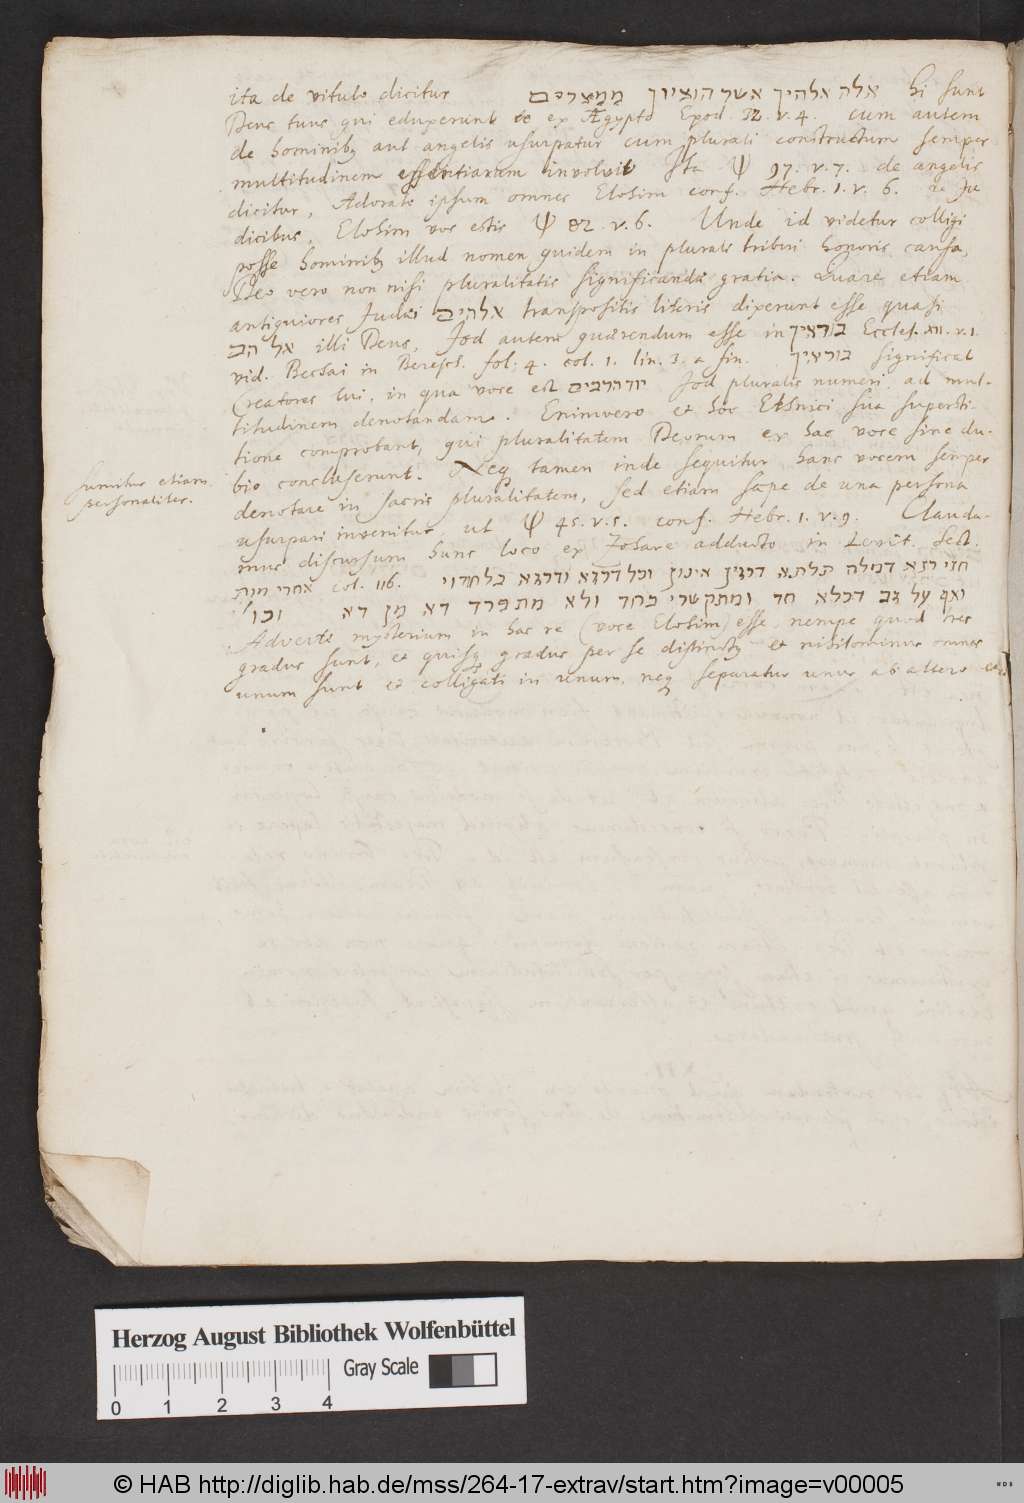 ita de vitulo dicitur אלה אלהיך אשר הוציוך ממצרים hi sunt
Deus tuus qui eduxerunt te ex Ægypto Exod. 32. v. 4. cum autem
de hominibq aut angelis usurpatur cum plurali constructum semper
multitudinem essentiarum involvit Ita Ψ 97. v. 7. de angelis
dicitur, Adorate ipsum omnes Elohim conf. Hebr. 1. v. 6. de Ju
dicibus, Elohim vos estis Ψ 82. v. 6. Unde id videtur colligi
posse hominibq illud nomen quidem in plurali tribui honoris causa,
Deo vero non nisi pluralitatis significandæ gratia. Quare etiam
antiquiores Judæi אלהים transpositis literis dixerunt esse quasi
אל הם illi Deus, Jod autem quærendum esse in בוראיך Eccles. XII. v. 1.
vid. Bechai in Beresch. fol. 4. col. 1. lin. 3. a fin. בוראיך significat
Creatores tui, in qua voce est יוד הרבים Jod pluralis numeri, ad mul-
titudinem denotandam. Enimvero et hoc Ethnici sua supersti-
tione comprobant, qui pluralitatem Deorum ex hac voce sine du-
bio concluserunt. Neq tamen inde sequitur hanc vocem semper
sumitur etiam
personaliter.
denotare in sacris pluralitatem, sed etiam sæpe de una persona
usurpari invenitur, ut Ψ 45. v. 5. conf. Hebr. 1. v. 9. Clauda-
mus discursum hunc loco ex Zohare adducto in Levit. sect.
אחרי מות col. 116. חזי רזא דמלה תלתא דרגין אינון וכל דרגא ודרגא בלחודוי
ואף על גב דכלא חד ומתקשרי בחד ולא מתפרד דא מן דא וכו'
Adverte mysterium in hac re (voce Elohim) esse, nempe quod tres
gradus sunt, et quisq gradus per se distinctq et nihilominus omnes
unum sunt et colligati in unum, neq separatur unus ab altero
Herzog August Bibliothek Wolfenbüttel
Gray Scale
0 1 2 3 4
© HAB http://diglib.hab.de/mss/264-17-extrav/start.htm?image=v00005